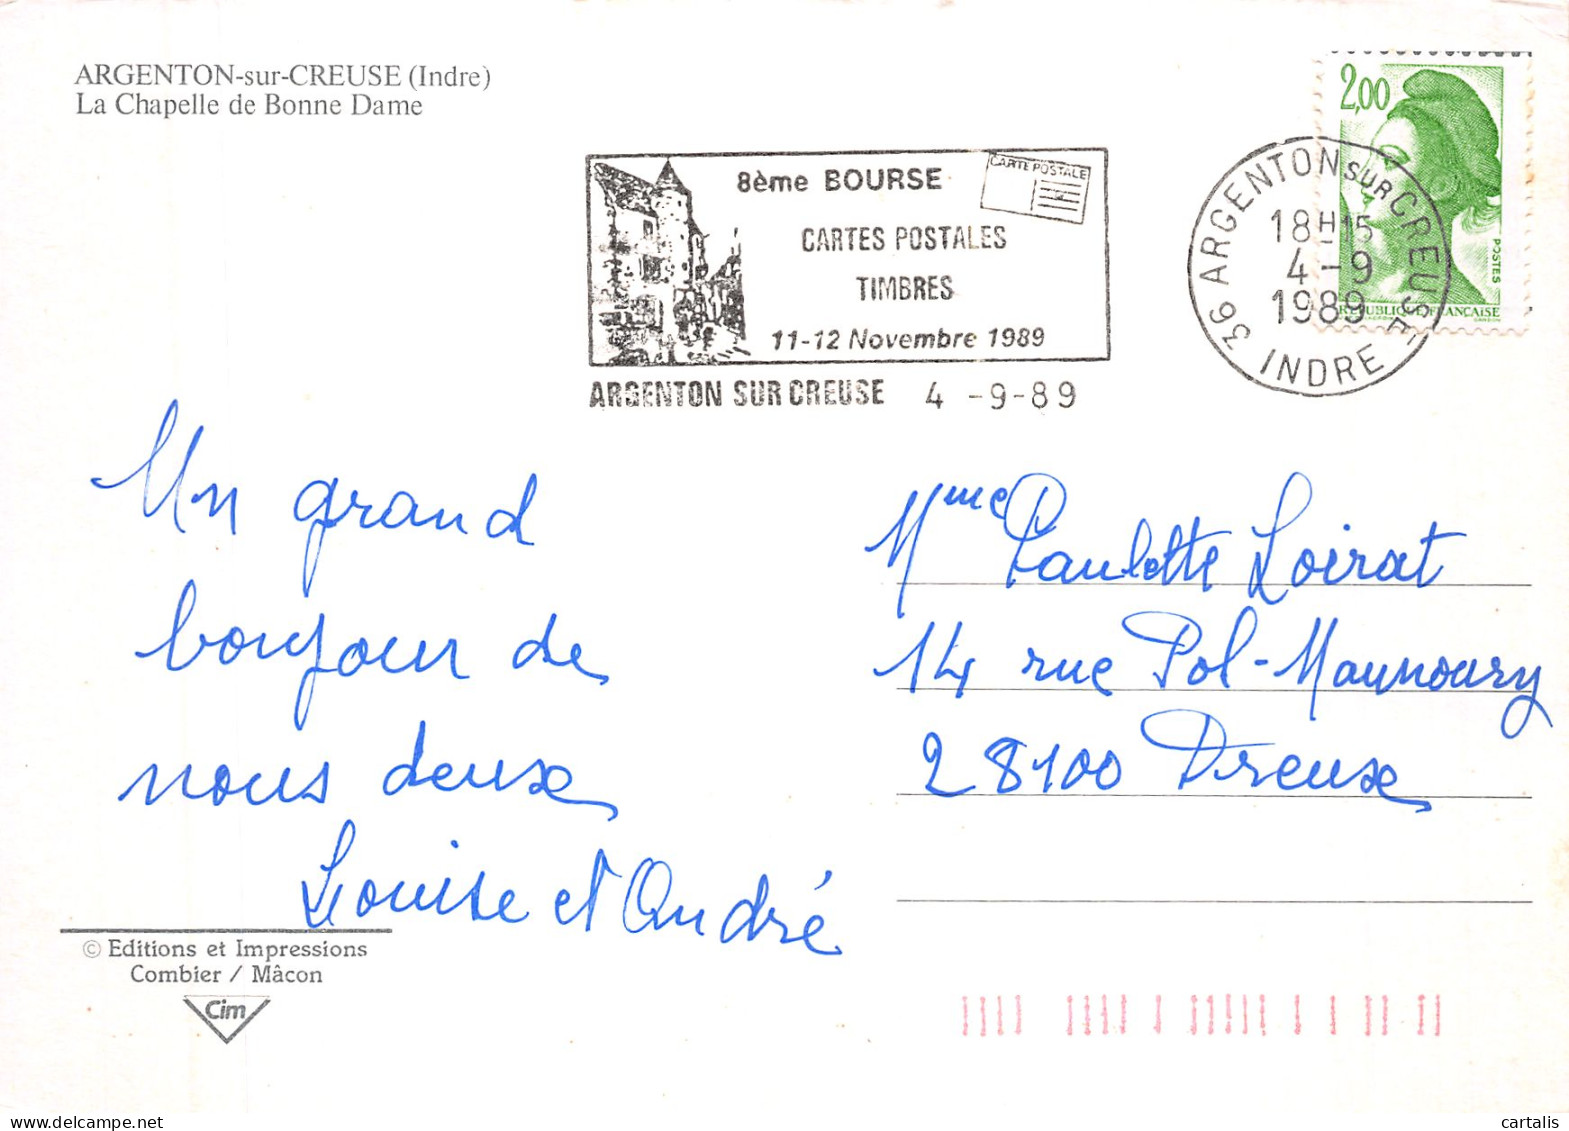 ARGENTON-sur-CREUSE (Indre)
La Chapelle de Bonne Dame
8ème BOURSE
CARTES POSTALES
TIMBRES
11-12 Novembre 1989
CARTE POSTALE
ARGENTON SUR CREUSE 4 -9-89
36 ARGENTON SUR CREUSE
18H15
4-9
1989
INDRE
2,00
POSTES
REPUBLIQUE FRANÇAISE
Un grand
bonjour de
nous deux
Louise et André
Mme Paulette Loirat
14 rue Pol-Maunoury
28100 Dreux
© Editions et Impressions
Combier / Mâcon
Cim
cartalis